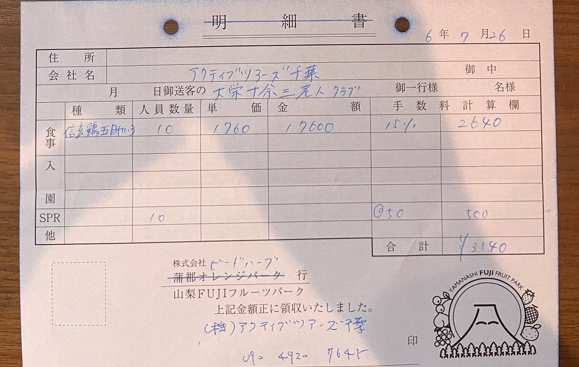 明細書
6年7月26日
住所
会社名 アクティブツアーズ千葉 御中
月 日御送客の 大栄十余三老人クラブ 御一行様 名様
種類 人員数量 単価 金額 手数料計算欄
食事 信玄鶏五目 10 1760 17600 15% 2640
入園
SPR 10 @50 500
他
合計 ¥3140
株式会社 ビードハーブ
蒲郡オレンジパーク 行
山梨FUJIフルーツパーク
上記金額正に領収いたしました。
(株)アクティブツアーズ千葉
印
090 4920 7645
YAMANASHI FUJI FRUIT PARK